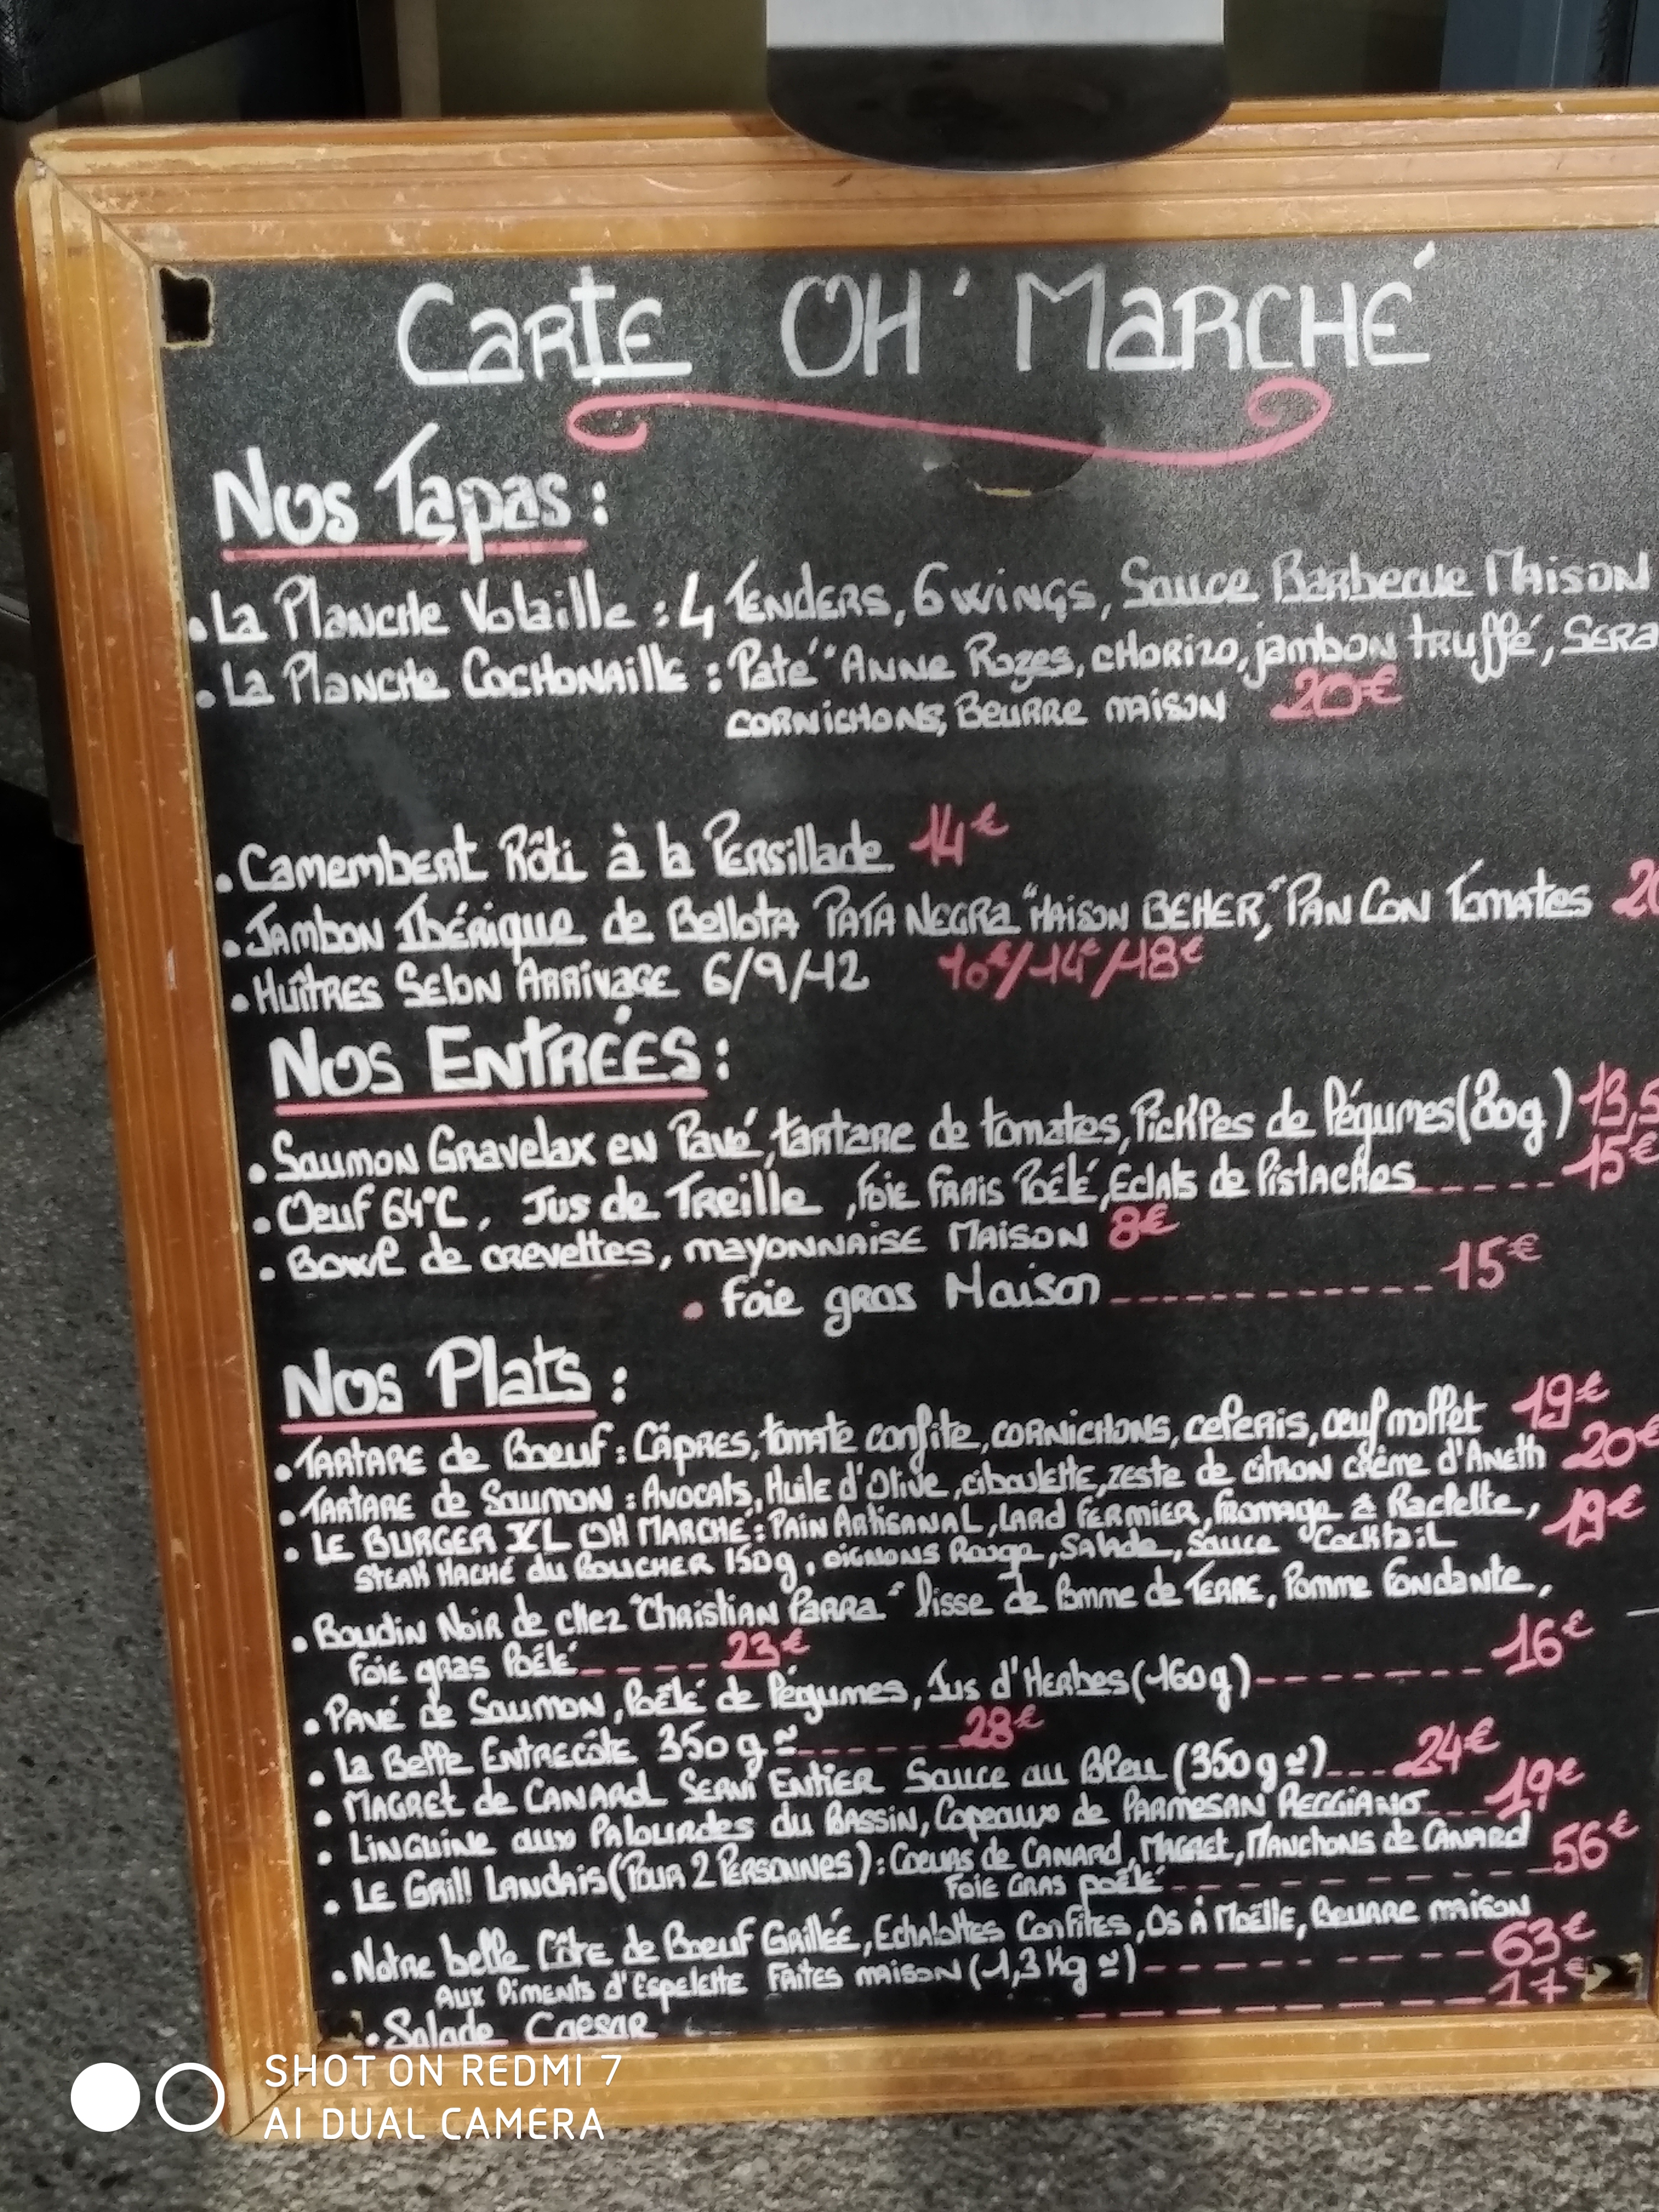 Carte OH' Marché
Nos Tapas :
. La Planche Volaille : 4 Tenders, 6 wings, Sauce Barbecue Maison
. La Planche Cochonaille : Paté "Anne Rozes, chorizo, jambon truffé, Sera
cornichons, Beurre maison 20€
. Camembert Rôti à la Persillade 14€
. Jambon Ibérique de Bellota PATA NEGRA "MAISON BEHER," PAN CON Tomates 20
. Huîtres Selon Arrivage 6/9/12 10€/14€/18€
Nos Entrées :
. Saumon Gravelax en Pavé, tartare de tomates, Pickles de Légumes (80g) 13,5
. Oeuf 64°C, Jus de Treille, Foie Frais Poêlé, Eclats de Pistaches 15€
. Bowl de crevettes, mayonnaise Maison 8€
. Foie gras Maison 15€
Nos Plats :
. Tartare de Boeuf : Câpres, tomate confite, cornichons, celeris, œuf mollet 19€
. Tartare de Saumon : Avocats, Huile d'Olive, ciboulette, zeste de citron crème d'Aneth 20€
. LE BURGER XL OH MARCHÉ : Pain Artisanal, Lard Fermier, fromage à Raclette,
Steak Haché du Boucher 150g, oignons Rouge, Salade, Sauce Cocktail 19€
. Boudin Noir de chez "Christian Parra" lisse de Pomme de Terre, Pomme Fondante,
Foie gras Poêlé 23€
. Pavé de Saumon, Poêlé de Légumes, Jus d'Herbes (160g) 16€
. La Belle Entrecôte 350g ≃ 28€
. Magret de Canard Servi Entier Sauce au Bleu (350g ≃) 24€
. Linguine aux Palourdes du Bassin, Copeaux de Parmesan Reggiano 19€
. Le Grill Landais (Pour 2 Personnes) : Coeurs de Canard, Magret, Manchons de Canard
Foie Gras poêlé 56€
. Notre belle Côte de Boeuf Grillée, Echalottes Confites, Os à Moëlle, Beurre maison
Aux Piments d'Espelette Faites maison (1,3 Kg ≃) 63€
. Salade Caesar 17€
SHOT ON REDMI 7
AI DUAL CAMERA